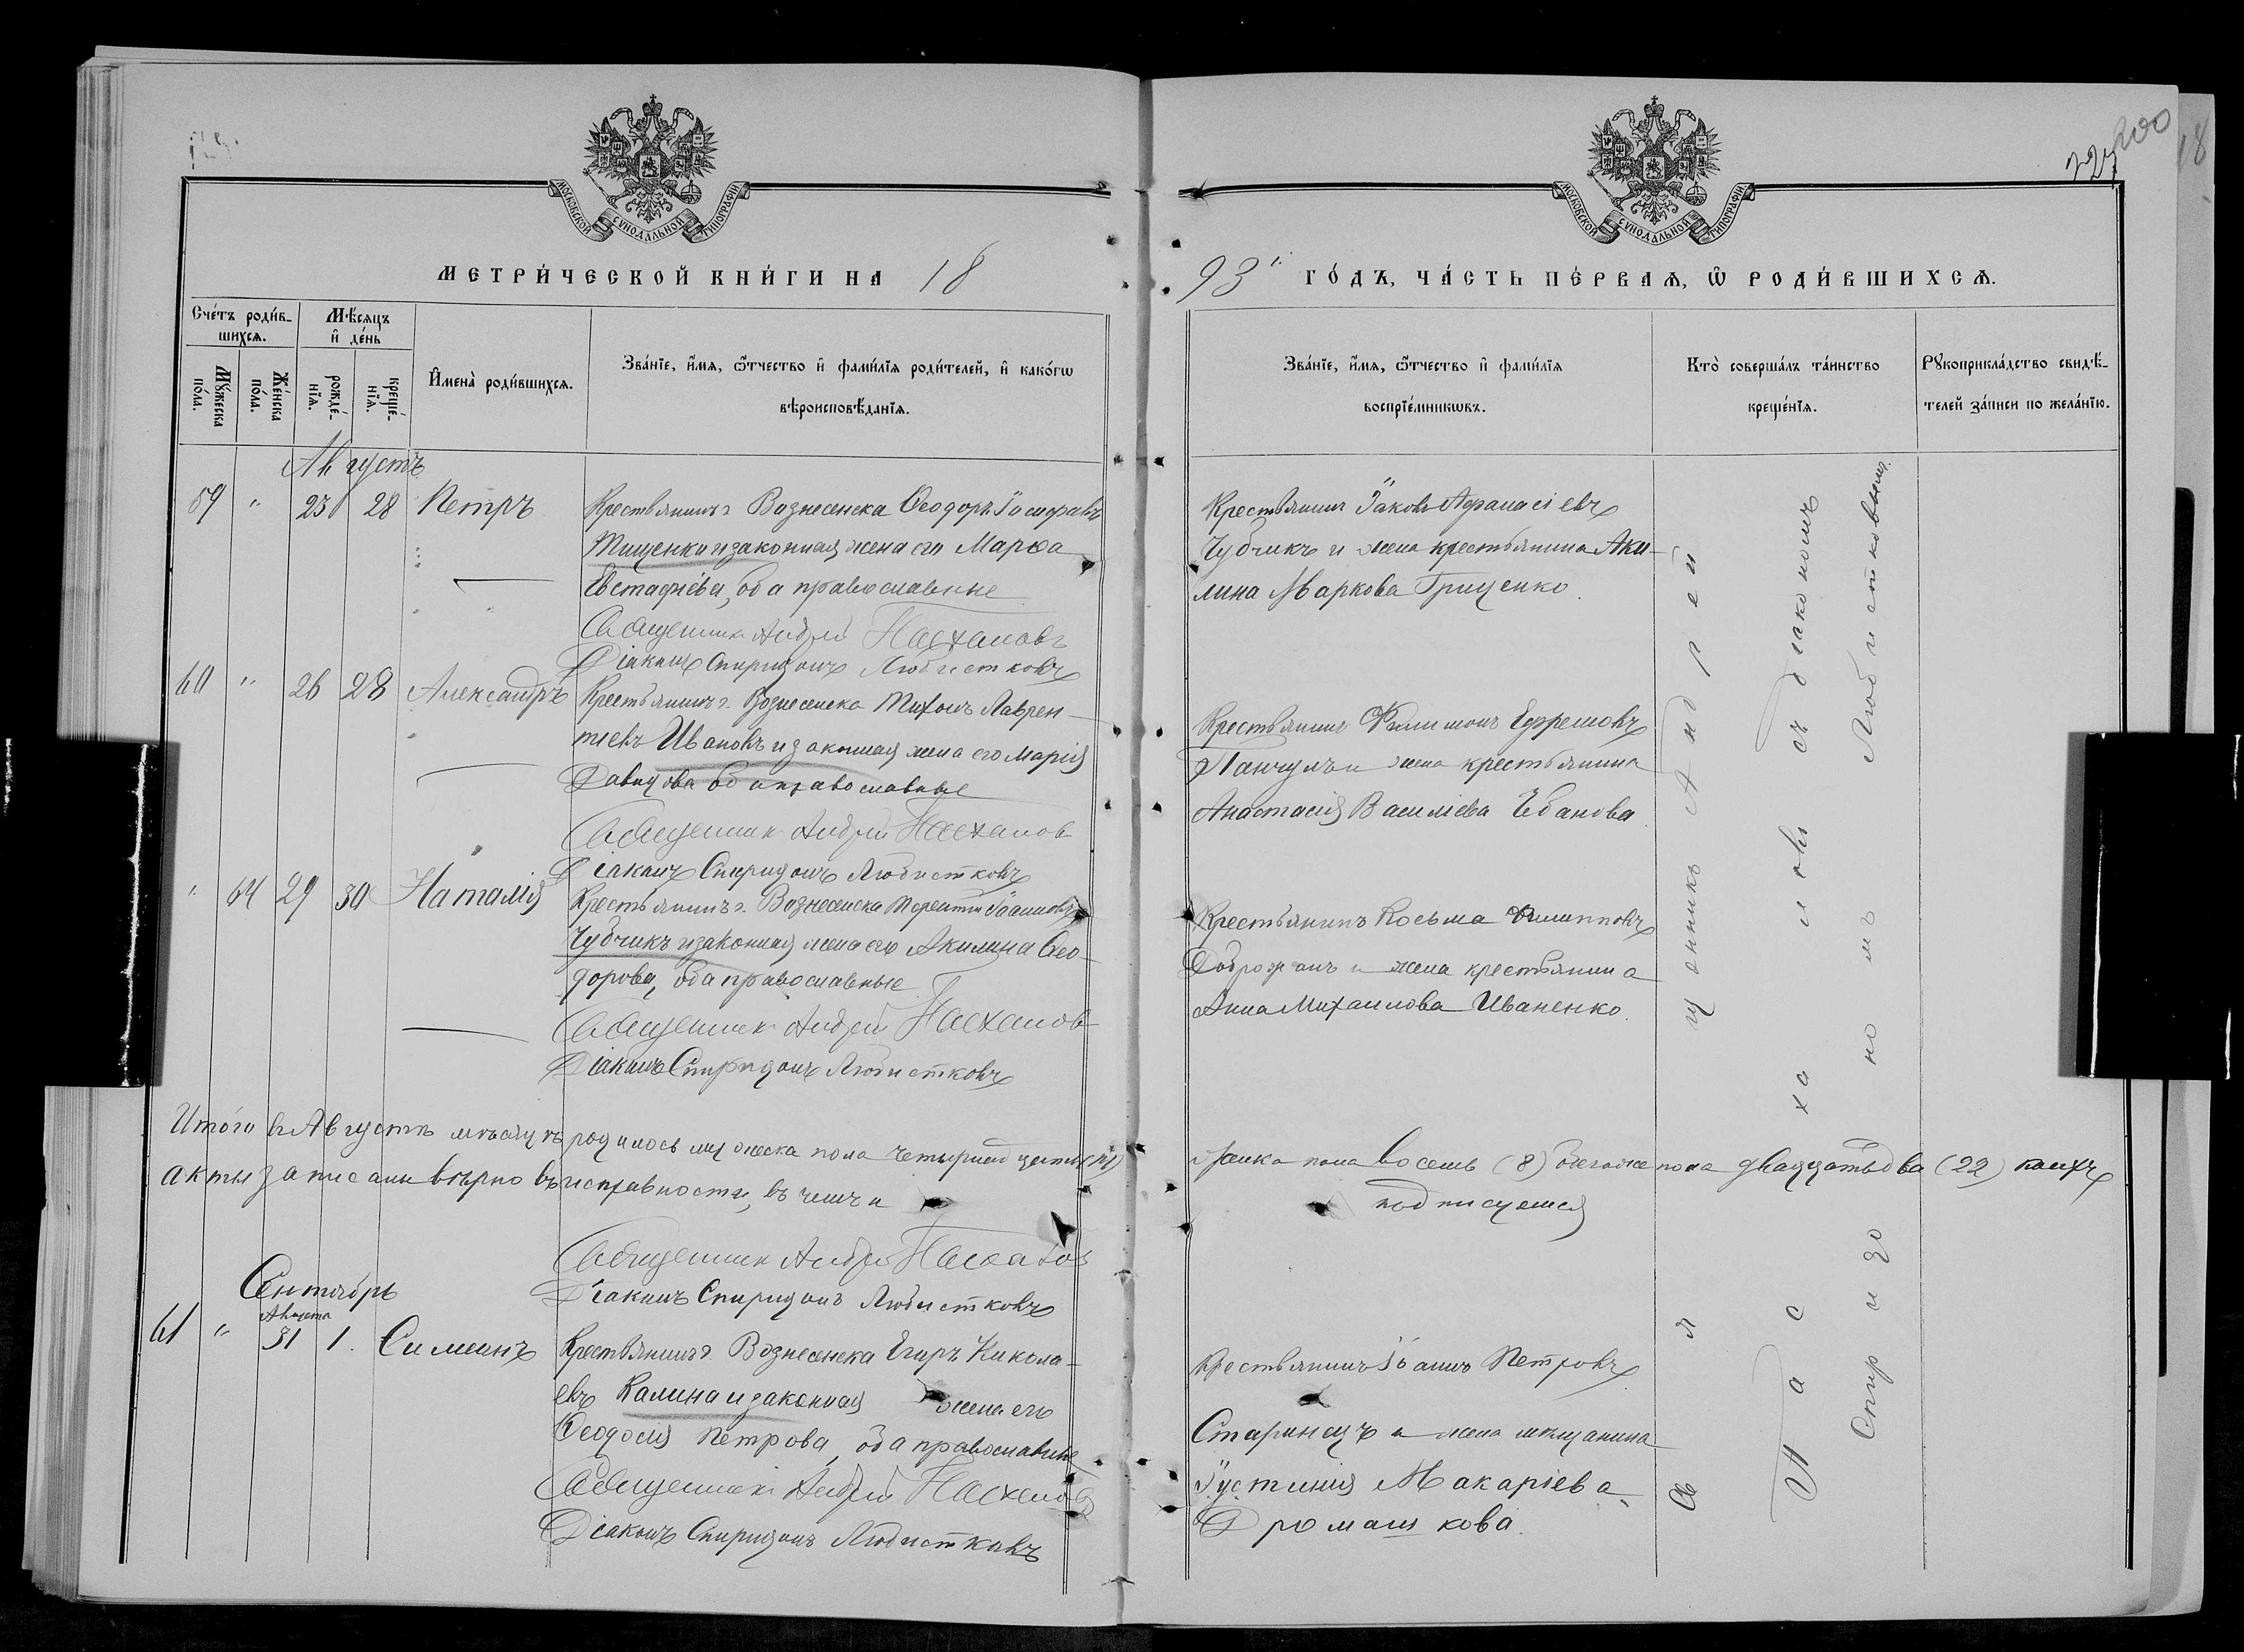 200
227
18
МОСКОВСКОЙ СѴНОДАЛЬНОЙ ТИПОГРАФІИ
МОСКОВСКОЙ СѴНОДАЛЬНОЙ ТИПОГРАФІИ
МЕТРИ́ЧЕСКОЙ КНИ́ГИ НА 18
93 ГО́ДЪ, ЧА́СТЬ ПЕ́РВАѦ, Ѽ РОДИ́ВШИХСѦ.
Сче́тъ роди́в-
шихсѧ.
Мѣ́сѧцъ
и҆ де́нь
Мꙋ́жеска
по́ла.
Же́нска
по́ла.
рожде́-
нїѧ.
креще́-
нїѧ.
И҆мена̀ роди́вшихсѧ.
Зва́нїе, и҆́мѧ, ѻ҆́тчество и҆ фами́лїѧ роди́телей, и҆ како́гѡ
вѣроисповѣ́данїѧ.
Зва́нїе, и҆́мѧ, ѻ҆́тчество и҆ фами́лїѧ
воспрїе́мникѡвъ.
Кто̀ соверша́лъ та́инство
креще́нїѧ.
Рꙋкоприкла́дство свидѣ́-
телей за́писи по жела́нїю.
Августъ
59 " 23 28 Петръ
Крестьянинъ г. Вознесенска Ѳеодоръ Іосифовъ
Тищенко и законная жена его Марѳа
Евстафіева, оба православные
Священникъ Андрей Пасхаловъ
Діаконъ Спиридонъ Любистковъ
Крестьянинъ Іаковъ Афанасіевъ
Чубчикъ и жена крестьянина Аки-
лина Маркова Гриценко.
60 " 26 28 Александръ
Крестьянинъ г. Вознесенска Тихонъ Лаврен-
тіевъ Ивановъ и законная жена его Марія
Давидова оба православные
Священникъ Андрей Пасхалов
Діаконъ Спиридонъ Любистковъ
Крестьянинъ Филимонъ Ефремовъ
и жена крестьянина
Анастасія Василіева
" 64 29 30 Наталія
Крестьянинъ г. Вознесенска Терентій Іоанновъ
Чубчикъ и законная жена его Акилина Ѳео-
дорова, оба православные
Священникъ Андрей Пасхалов
Діаконъ Спиридонъ Любистковъ
Крестьянинъ Косьма Филипповъ
Доброжанъ и жена крестьянина
Анна Михаилова Иваненко.
Итого въ Августѣ мѣсяцѣ родилось мужеска пола четырнадцать (14)
женска пола восемь (8) обоего же пола двадцать два (22) коихъ
акты записаны вѣрно въ исправности, въ чемъ и
подписуемся
Священник Андрей Пасхалов
Діаконъ Спиридонъ Любистковъ
Сентябрь
Августа
61 " 31 1. Симеонъ
Крестьянинъ г. Вознесенска Егоръ Никола-
евъ Калина и законная жена его
Ѳеодосія Петрова, оба православные
Священникъ Андрей Пасхалов
Діаконъ Спиридонъ Любистковъ
Крестьянинъ Іоаннъ Петровъ
Старинецъ и жена мѣщанина
Іустинія Макаріева
Священникъ Андрей
Пасхаловъ съ діакономъ
Спиридономъ Любистковымъ.